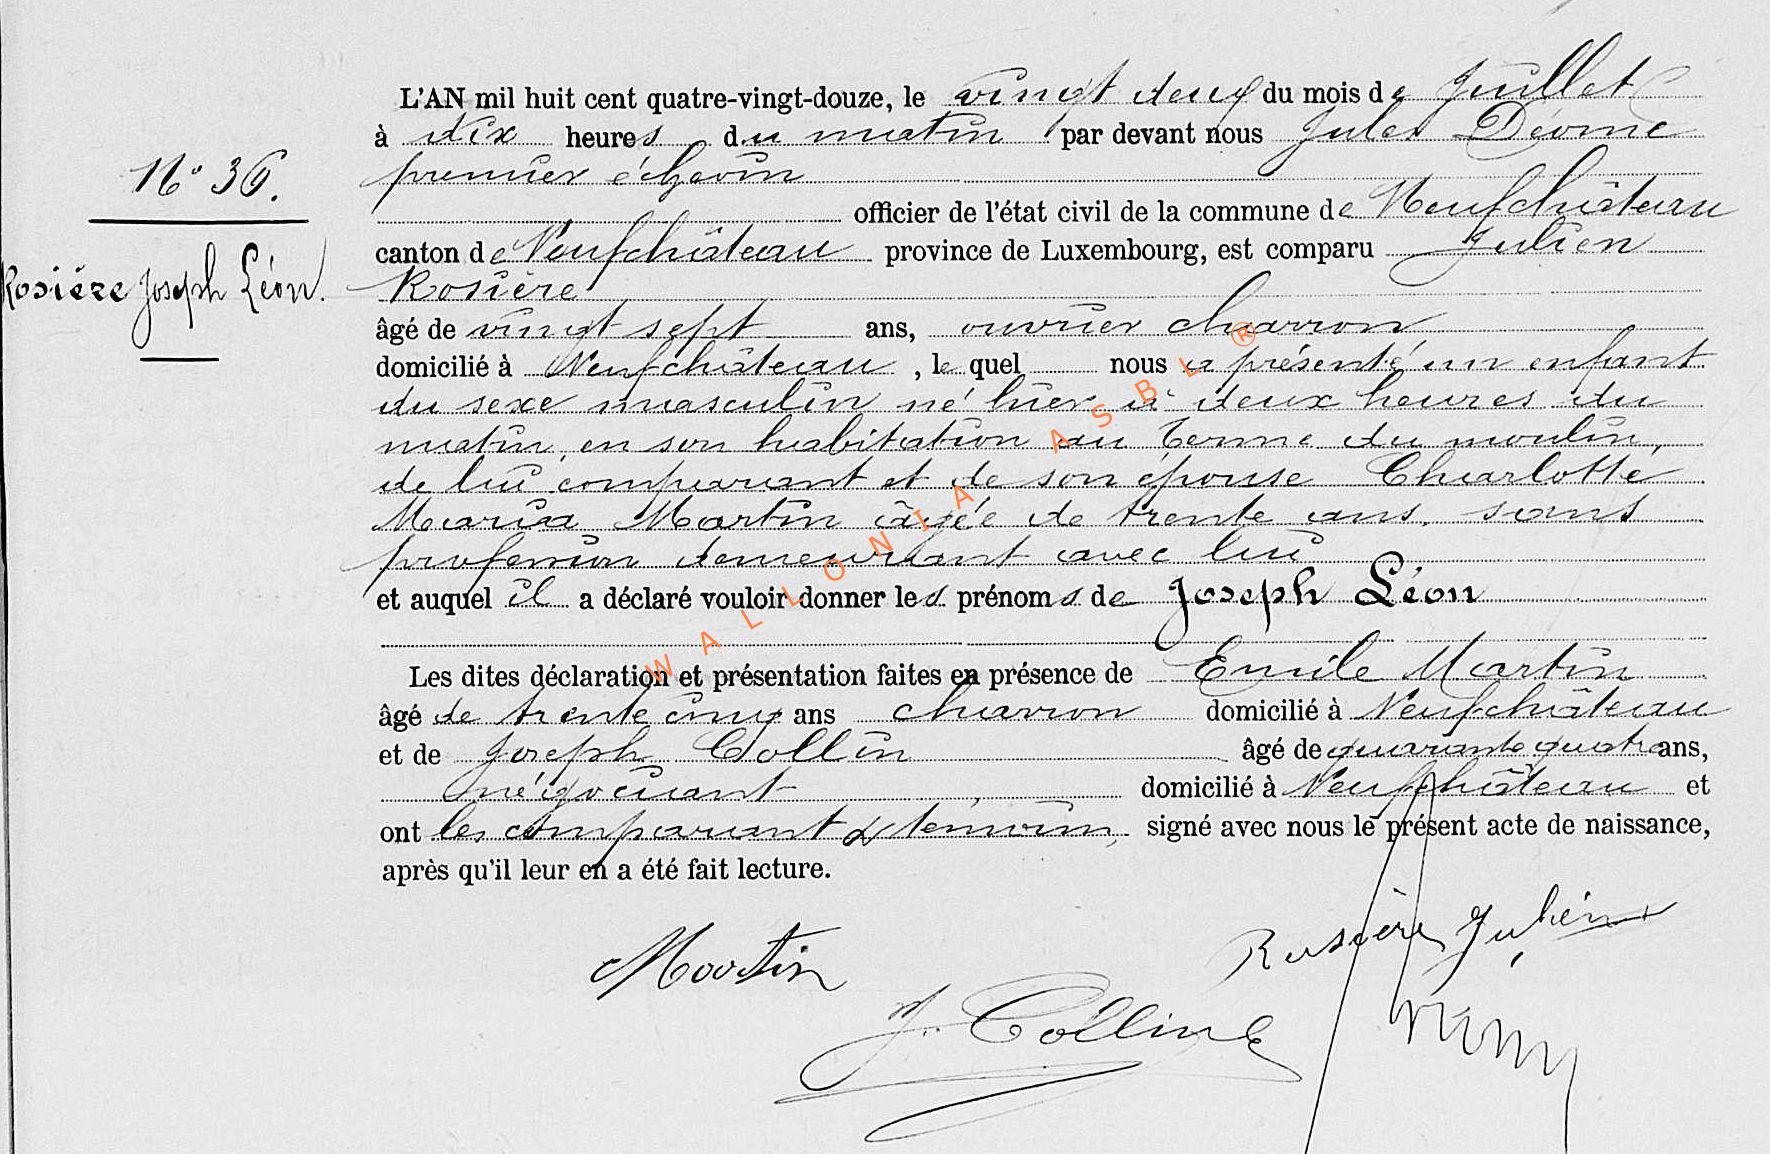 L'AN mil huit cent quatre-vingt-douze, le vingt deux du mois de Juillet
à dix heures du matin par devant nous Jules Déome
premier échevin
officier de l'état civil de la commune de Neufchâteau
canton de Neufchâteau province de Luxembourg, est comparu Julien
Rosière
âgé de vingt sept ans, ouvrier charron
domicilié à Neufchâteau, lequel nous a présenté un enfant
du sexe masculin né hier à deux heures du
matin, en son habitation au Terme du moulin,
de lui comparant et de son épouse Charlotte
Maria Martin âgée de trente ans, sans
profession demeurant avec lui
et auquel il a déclaré vouloir donner les prénoms de Joseph Léon
Les dites déclaration et présentation faites en présence de Emile Martin
âgé de trente cinq ans charron domicilié à Neufchâteau
et de Joseph Collin âgé de quarante quatre ans,
négociant domicilié à Neufchâteau et
ont les comparant & témoins, signé avec nous le présent acte de naissance,
après qu'il leur en a été fait lecture.
N° 36.
Rosière Joseph Léon.
Rosière Julien
Martin
J. Colline
WALLONIA ASBL ®